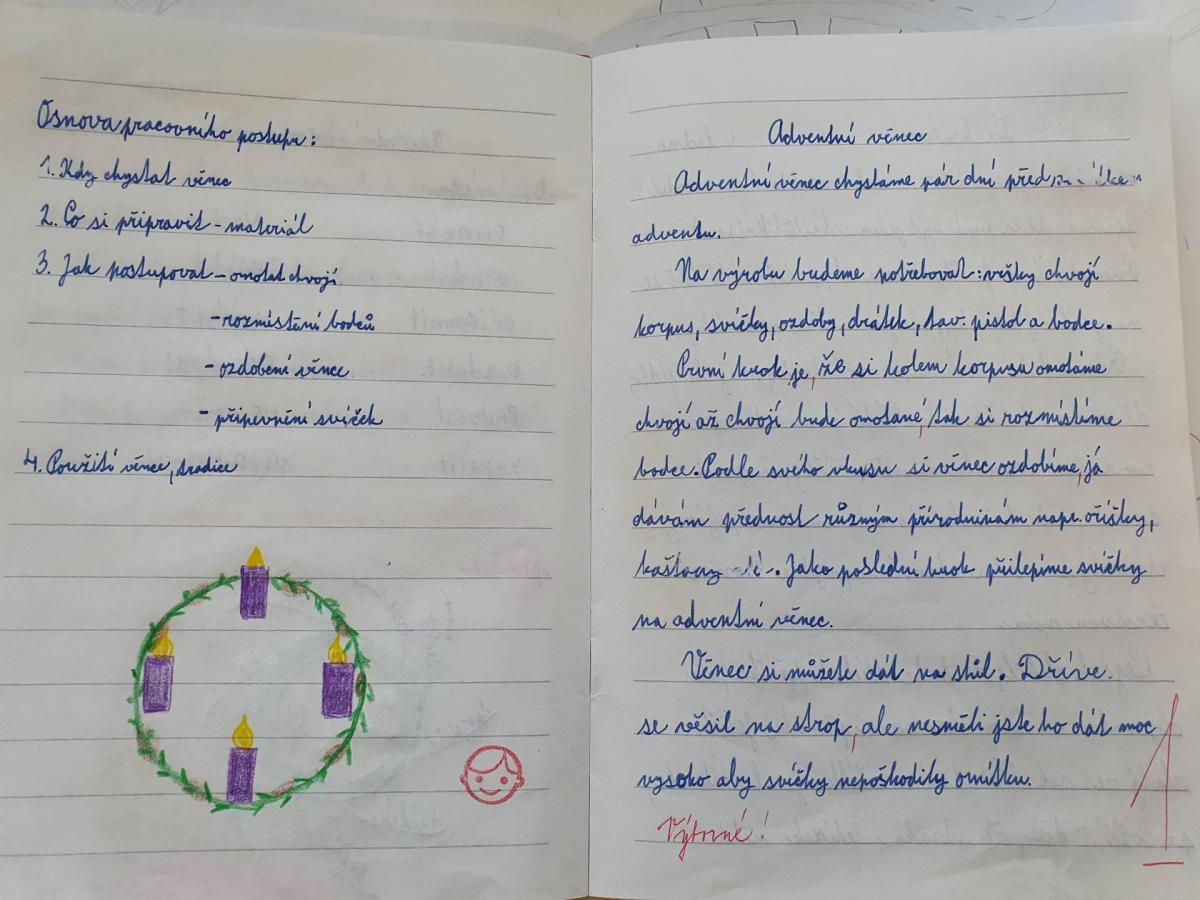 Osnova pracovního postupu:
1. Kdy chystat věnec
2. Co si připravit - materiál
3. Jak postupovat - omotat chvojí
- rozmístění bodců
- ozdobení věnce
- připevnění svíček
4. Použití věnce, tradice
Adventní věnec
Adventní věnec chystáme pár dní před
adventu.
Na výrobu budeme potřebovat: vršky chvojí
korpus, svíčky, ozdoby, drátek, tav. pistol a bodce.
První krok je, že si kolem korpusu omotáme
chvojí až chvojí bude omotané, tak si rozmístíme
bodce. Podle svého vkusu si věnec ozdobíme, já
dávám přednost různým přírodninám např. oříšky,
kaštany. Jako poslední krok přilepíme svíčky
na adventní věnec.
Věnec si můžete dát na stůl. Dříve
se věsil na strop, ale nesměli jste ho dát moc
vysoko aby svíčky nepoškodily omítku.
Výborné!
1